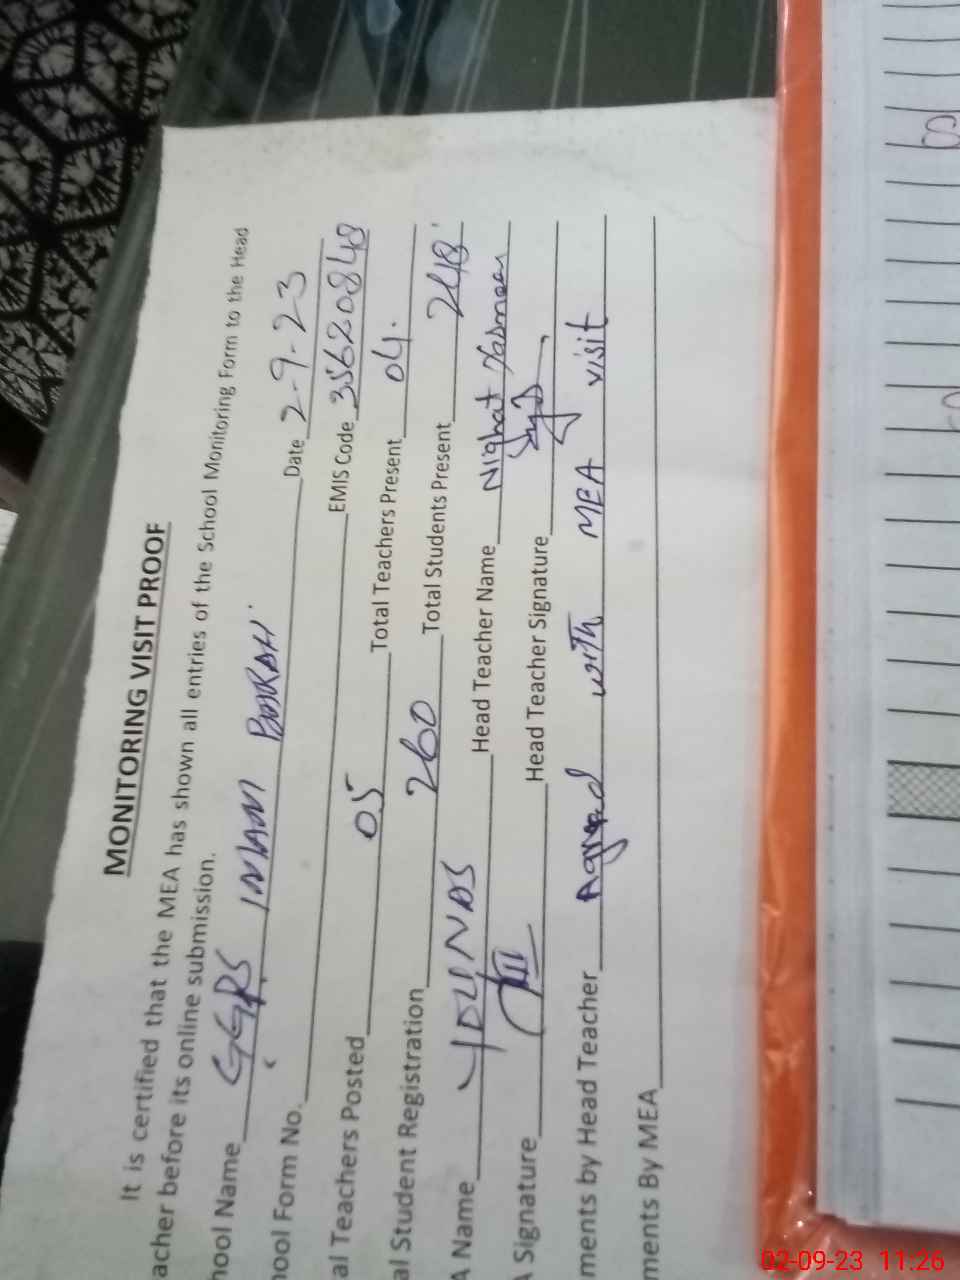 MONITORING VISIT PROOF
It is certified that the MEA has shown all entries of the School Monitoring Form to the Head
acher before its online submission.
hool Name GGPS IMAM BARGAH Date 2-9-23
hool Form No. EMIS Code 35620848
al Teachers Posted 05 Total Teachers Present 04.
al Student Registration 260 Total Students Present 248
A Name YOUNAS Head Teacher Name Nighat Yasmeen
A Signature Head Teacher Signature
ments by Head Teacher Agreed with MEA visit
ments By MEA
02-09-23 11:26